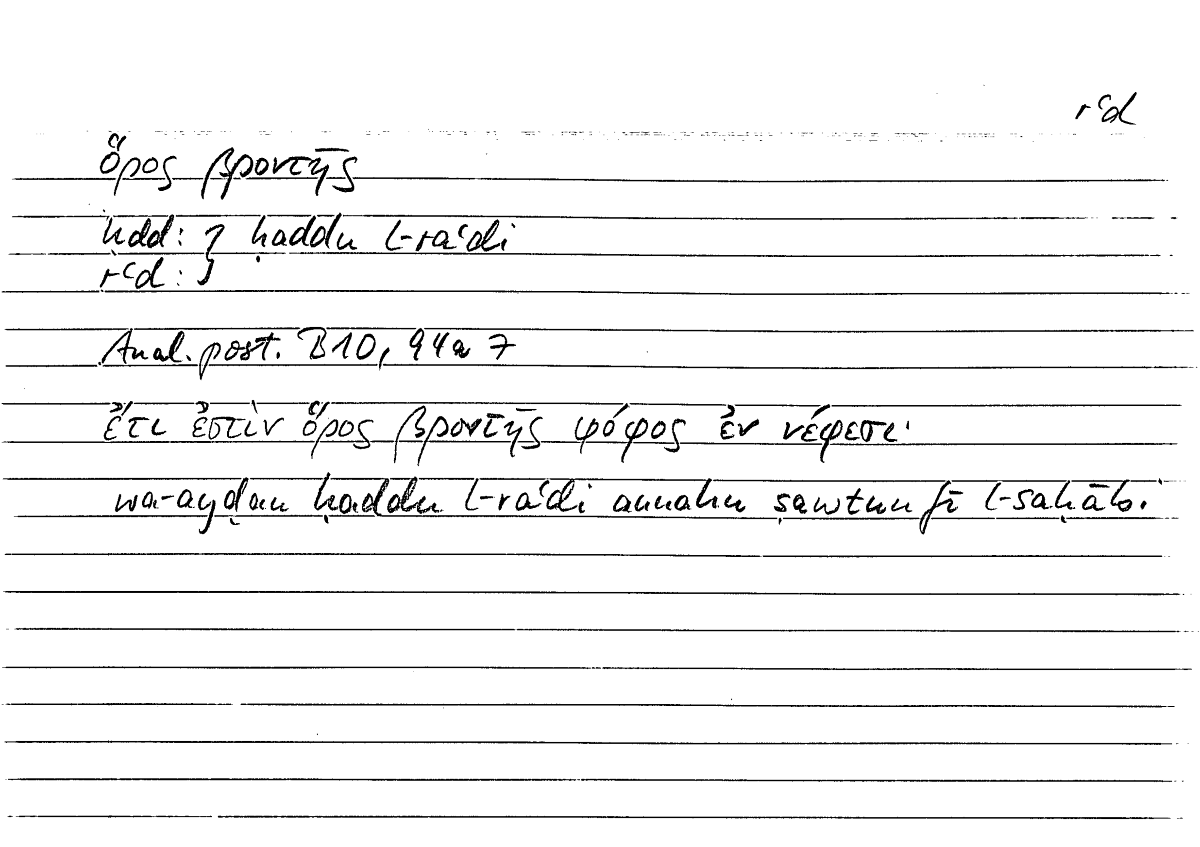 rʿd
ὅρος βροντῆς
ḥdd: } ḥaddu l-raʿdi
rʿd: }
Anal. post. B10, 94a 7
ἔτι ἐστὶν ὅρος βροντῆς ψόφος ἐν νέφεσι·
wa-ayḍan ḥaddu l-raʿdi annahu ṣawtun fī l-saḥābi.